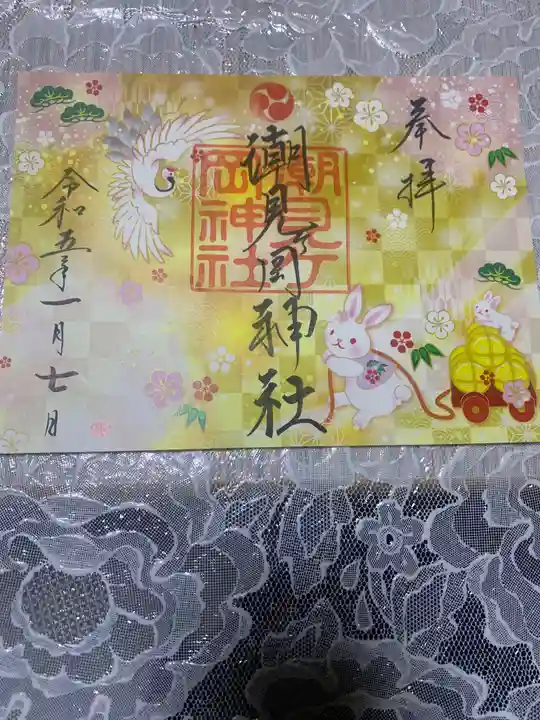 奉拝
潮見ヶ岡神社
潮見ヶ
岡神社
令和五年一月七日